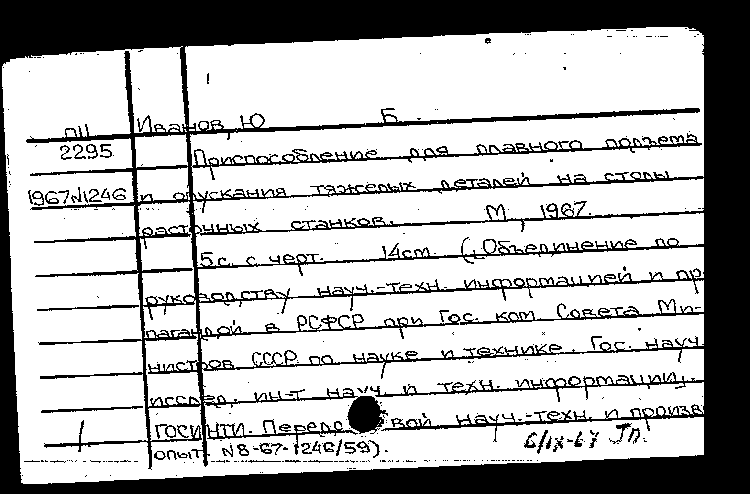 ПII Иванов, Ю Б.
2295 Приспособление для плавного подъема
1967N1246 и опускания тяжелых деталей на столы
расточных станков. М, 1967.
5с. с черт. 14см. (Объединение по
руководству науч.-техн. информацией и пр
пагандой в РСФСР при Гос. ком. Совета Ми-
нистров СССР по науке и технике. Гос. науч.
исслед. ин-т науч. и техн. информации.
ГОСИНТИ. Передовой науч.-техн. и произв
опыт. N8-67-1246/59).
6/IX-67